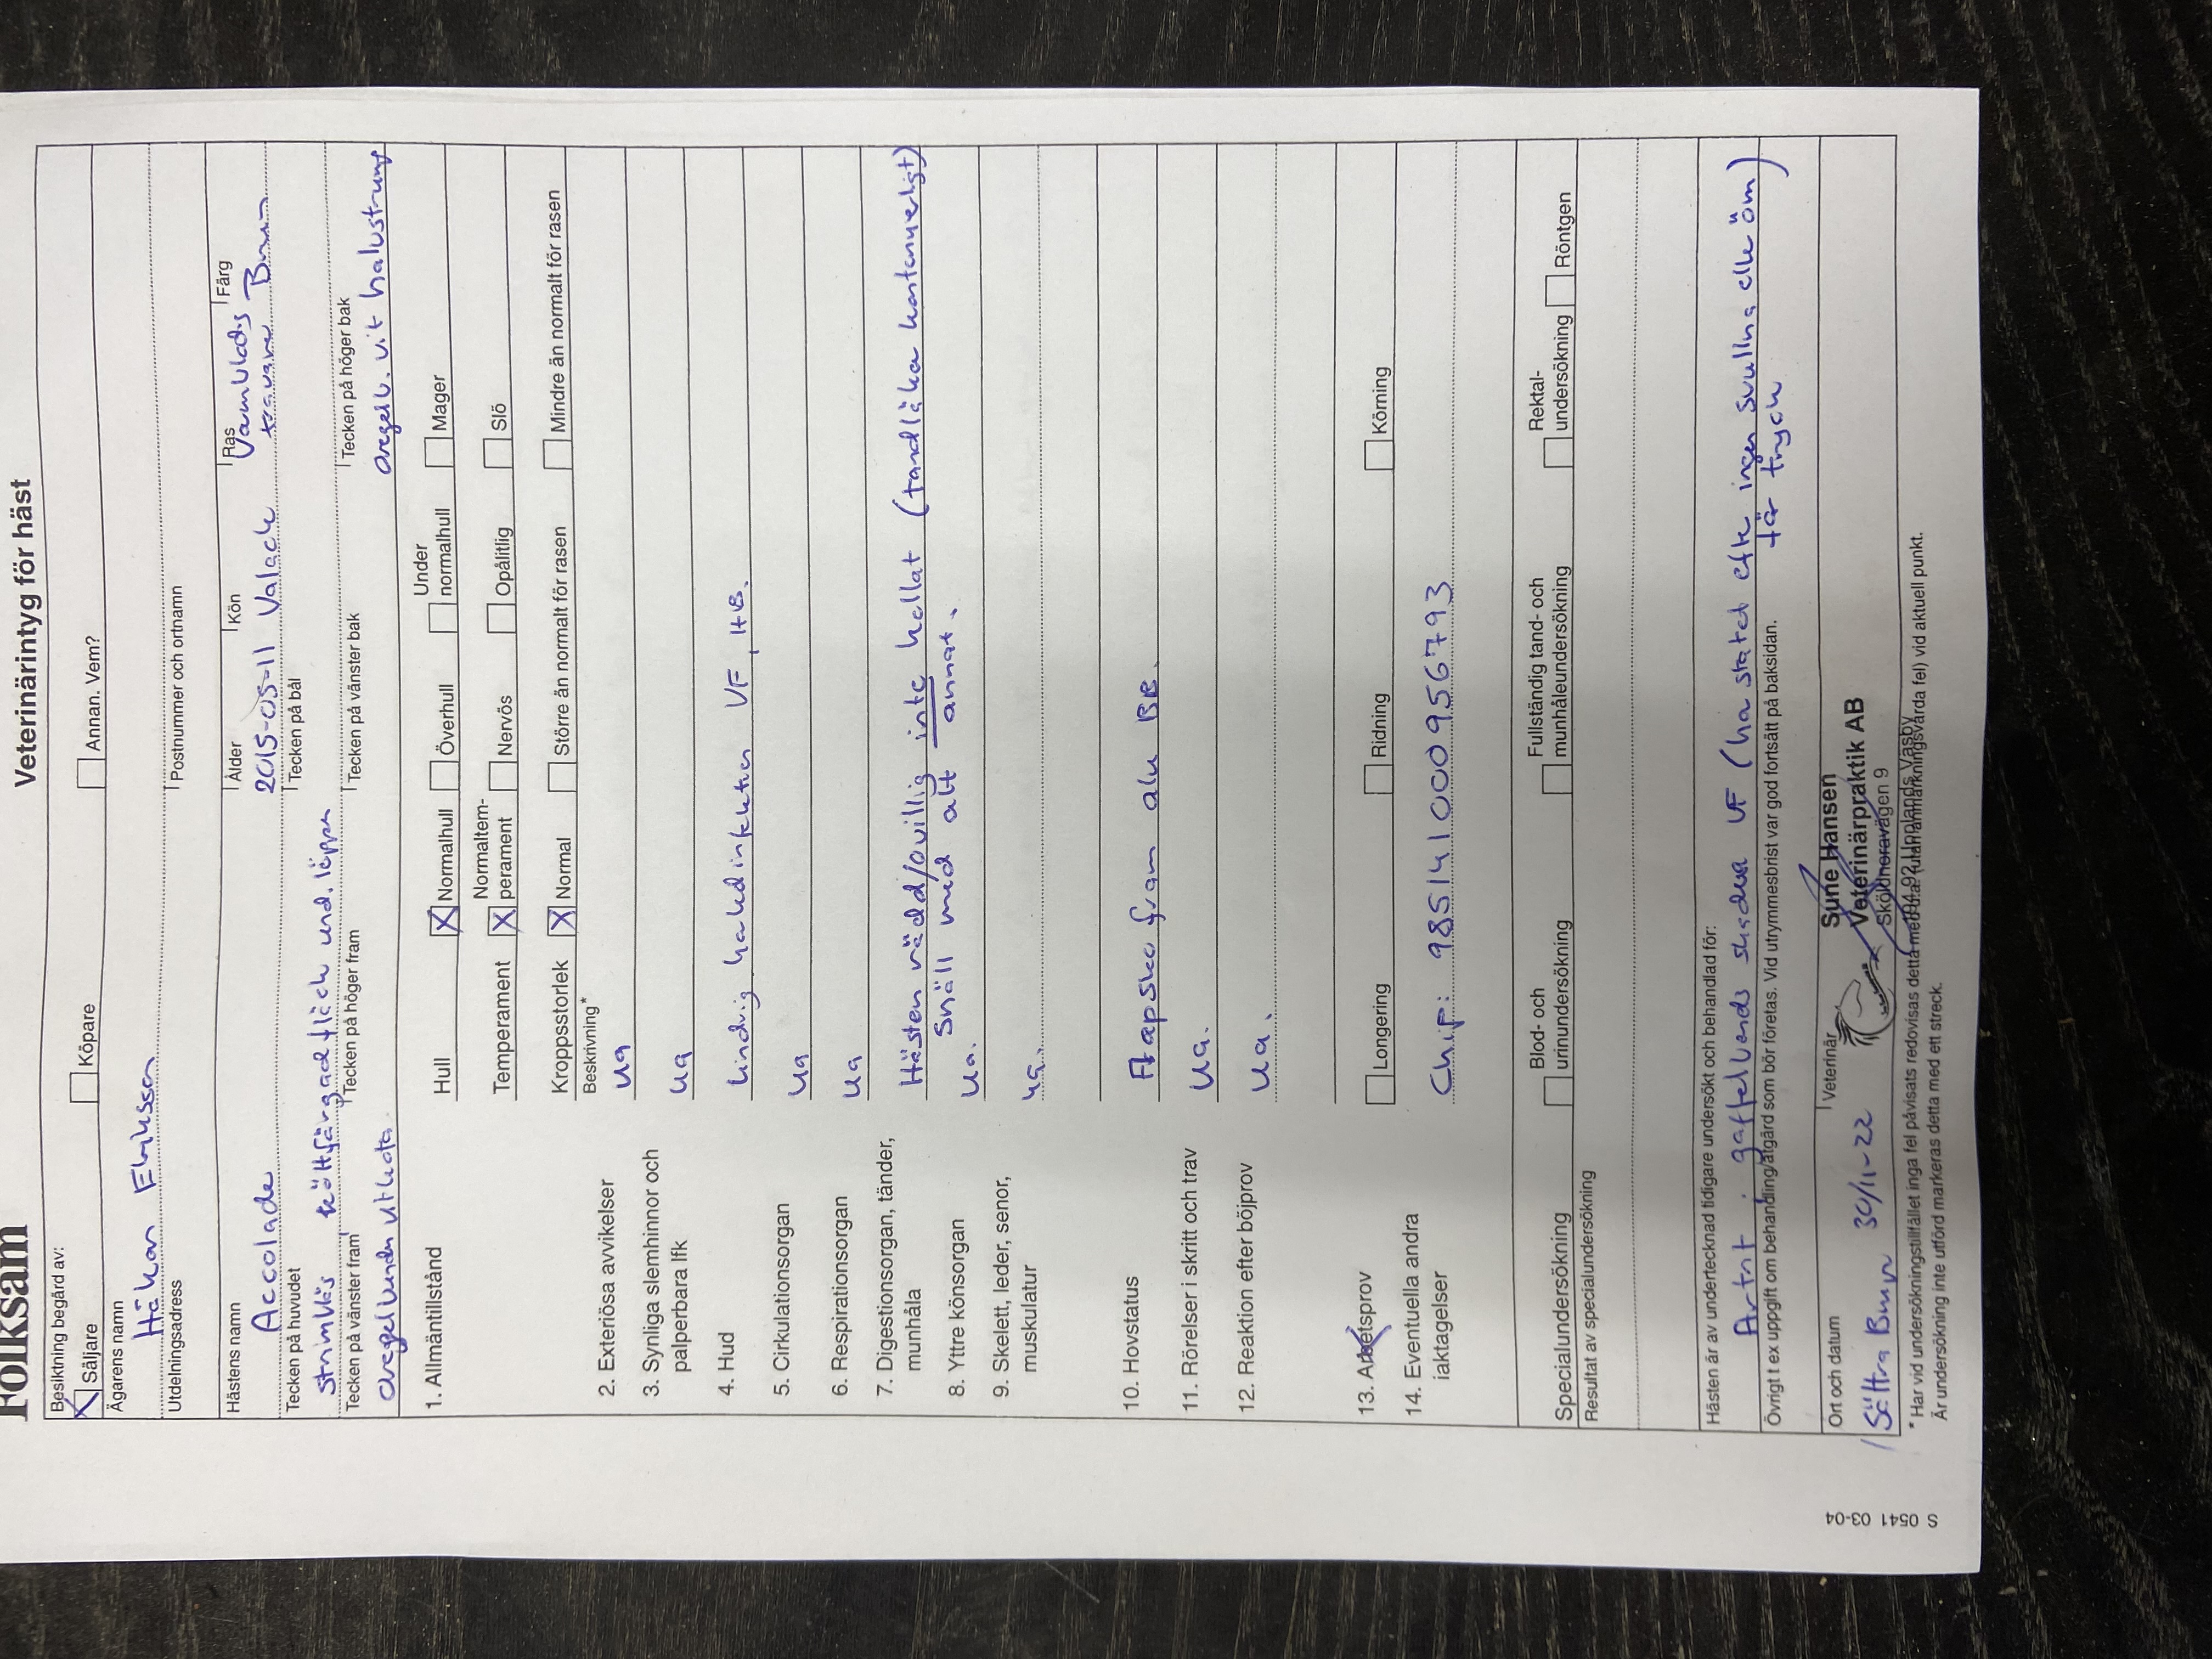 Folksam
Veterinärintyg för häst
Besiktning begärd av:
X Säljare Köpare Annan. Vem?
Ägarens namn
Håkan Eriksson
Utdelningsadress Postnummer och ortnamn
Hästens namn Ålder Kön Ras Färg
Accolade 2015-05-11 Valack Varmblodig travare Brun
Tecken på huvudet Tecken på bål
strimbläs, köttfärgad fläck und. läppen
Tecken på vänster fram Tecken på höger fram Tecken på vänster bak Tecken på höger bak
oregelbunden vit oregelb. vit halvstrump
1. Allmäntillstånd Hull X Normalhull Överhull Under normalhull Mager
Temperament X Normaltem-perament Nervös Opålitlig Slö
Kroppsstorlek X Normal Större än normalt för rasen Mindre än normalt för rasen
Beskrivning*
2. Exteriösa avvikelser ua
3. Synliga slemhinnor och
palperbara lfk ua
4. Hud lindrig karledinfektion VF, HB.
5. Cirkulationsorgan ua
6. Respirationsorgan ua
7. Digestionsorgan, tänder,
munhåla Hästen rädd/ovillig inte kollat (tandläka kontinuerligt)
snäll med allt annat.
8. Yttre könsorgan ua.
9. Skelett, leder, senor,
muskulatur ua.
10. Hovstatus fram alu BB.
11. Rörelser i skritt och trav ua.
12. Reaktion efter böjprov ua.
13. Arbetsprov Longering Ridning Körning
14. Eventuella andra
iaktagelser Chip: 985141000956793
Specialundersökning Blod- och urinundersökning Fullständig tand- och munhåleundersökning Rektal-undersökning Röntgen
Resultat av specialundersökning
Hästen är av undertecknad tidigare undersökt och behandlad för:
Artrit, gaffelbands skada VF (ha startat efter ingen svullna eller öm)
för tryck
Övrigt t ex uppgift om behandling/åtgärd som bör företas. Vid utrymmesbrist var god fortsätt på baksidan.
Ort och datum Veterinär
Sättra Brunn 30/11-22
Sune Hansen
Veterinärpraktik AB
Sköldnoravägen 9
194 92 Upplands Väsby
* Har vid undersökningstillfället inga fel påvisats redovisas detta med u.a. (utan anmärkningsvärda fel) vid aktuell punkt.
Är undersökning inte utförd markeras detta med ett streck.
S 0541 03-04